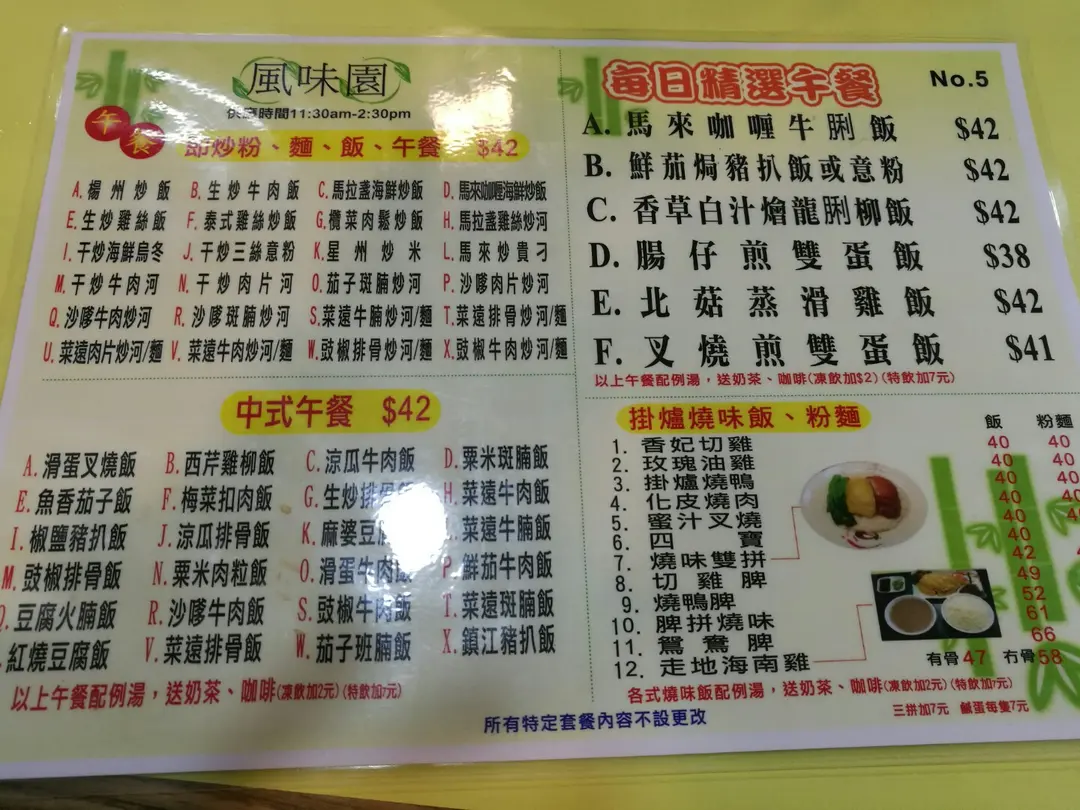 風味園
供應時間11:30am-2:30pm
午餐
即炒粉、麵、飯、午餐 $42
A.楊州炒飯 B.生炒牛肉飯 C.馬拉盞海鮮炒飯 D.馬來咖喱海鮮炒飯
E.生炒雞絲飯 F.泰式雞絲炒飯 G.欖菜肉鬆炒飯 H.馬拉盞雞絲炒河
I.干炒海鮮烏冬 J.干炒三絲意粉 K.星州炒米 L.馬來炒貴刁
M.干炒牛肉河 N.干炒肉片河 O.茄子斑腩炒河 P.沙嗲肉片炒河
Q.沙嗲牛肉炒河 R.沙嗲斑腩炒河 S.菜遠牛腩炒河/麵 T.菜遠排骨炒河/麵
U.菜遠肉片炒河/麵 V.菜遠牛肉炒河/麵 W.豉椒排骨炒河/麵 X.豉椒牛肉炒河/麵
中式午餐 $42
A.滑蛋叉燒飯 B.西芹雞柳飯 C.涼瓜牛肉飯 D.粟米斑腩飯
E.魚香茄子飯 F.梅菜扣肉飯 G.生炒排骨飯 H.菜遠牛肉飯
I.椒鹽豬扒飯 J.涼瓜排骨飯 K.麻婆豆腐 菜遠牛腩飯
M.豉椒排骨飯 N.粟米肉粒飯 O.滑蛋牛肉飯 P.鮮茄牛肉飯
Q.豆腐火腩飯 R.沙嗲牛肉飯 S.豉椒牛肉飯 T.菜遠斑腩飯
紅燒豆腐飯 V.菜遠排骨飯 W.茄子班腩飯 X.鎮江豬扒飯
以上午餐配例湯，送奶茶、咖啡(凍飲加2元)(特飲加7元)
每日精選午餐 No.5
A.馬來咖喱牛脷飯 $42
B.鮮茄焗豬扒飯或意粉 $42
C.香草白汁燴龍脷柳飯 $42
D.腸仔煎雙蛋飯 $38
E.北菇蒸滑雞飯 $42
F.叉燒煎雙蛋飯 $41
以上午餐配例湯，送奶茶、咖啡(凍飲加$2)(特飲加7元)
掛爐燒味飯、粉麵 飯 粉麵
1.香妃切雞 40 40
2.玫瑰油雞 40 40
3.掛爐燒鴨 40 40
4.化皮燒肉 40 40
5.蜜汁叉燒 40 40
6.四寶 40
7.燒味雙拼 42
8.切雞脾 49
9.燒鴨脾 52
10.脾拼燒味 61
11.鴛鴦脾 66
12.走地海南雞 有骨47 冇骨58
各式燒味飯配例湯，送奶茶、咖啡(凍飲加2元)(特飲加7元)
三拼加7元 鹹蛋每隻7元
所有特定套餐內容不設更改